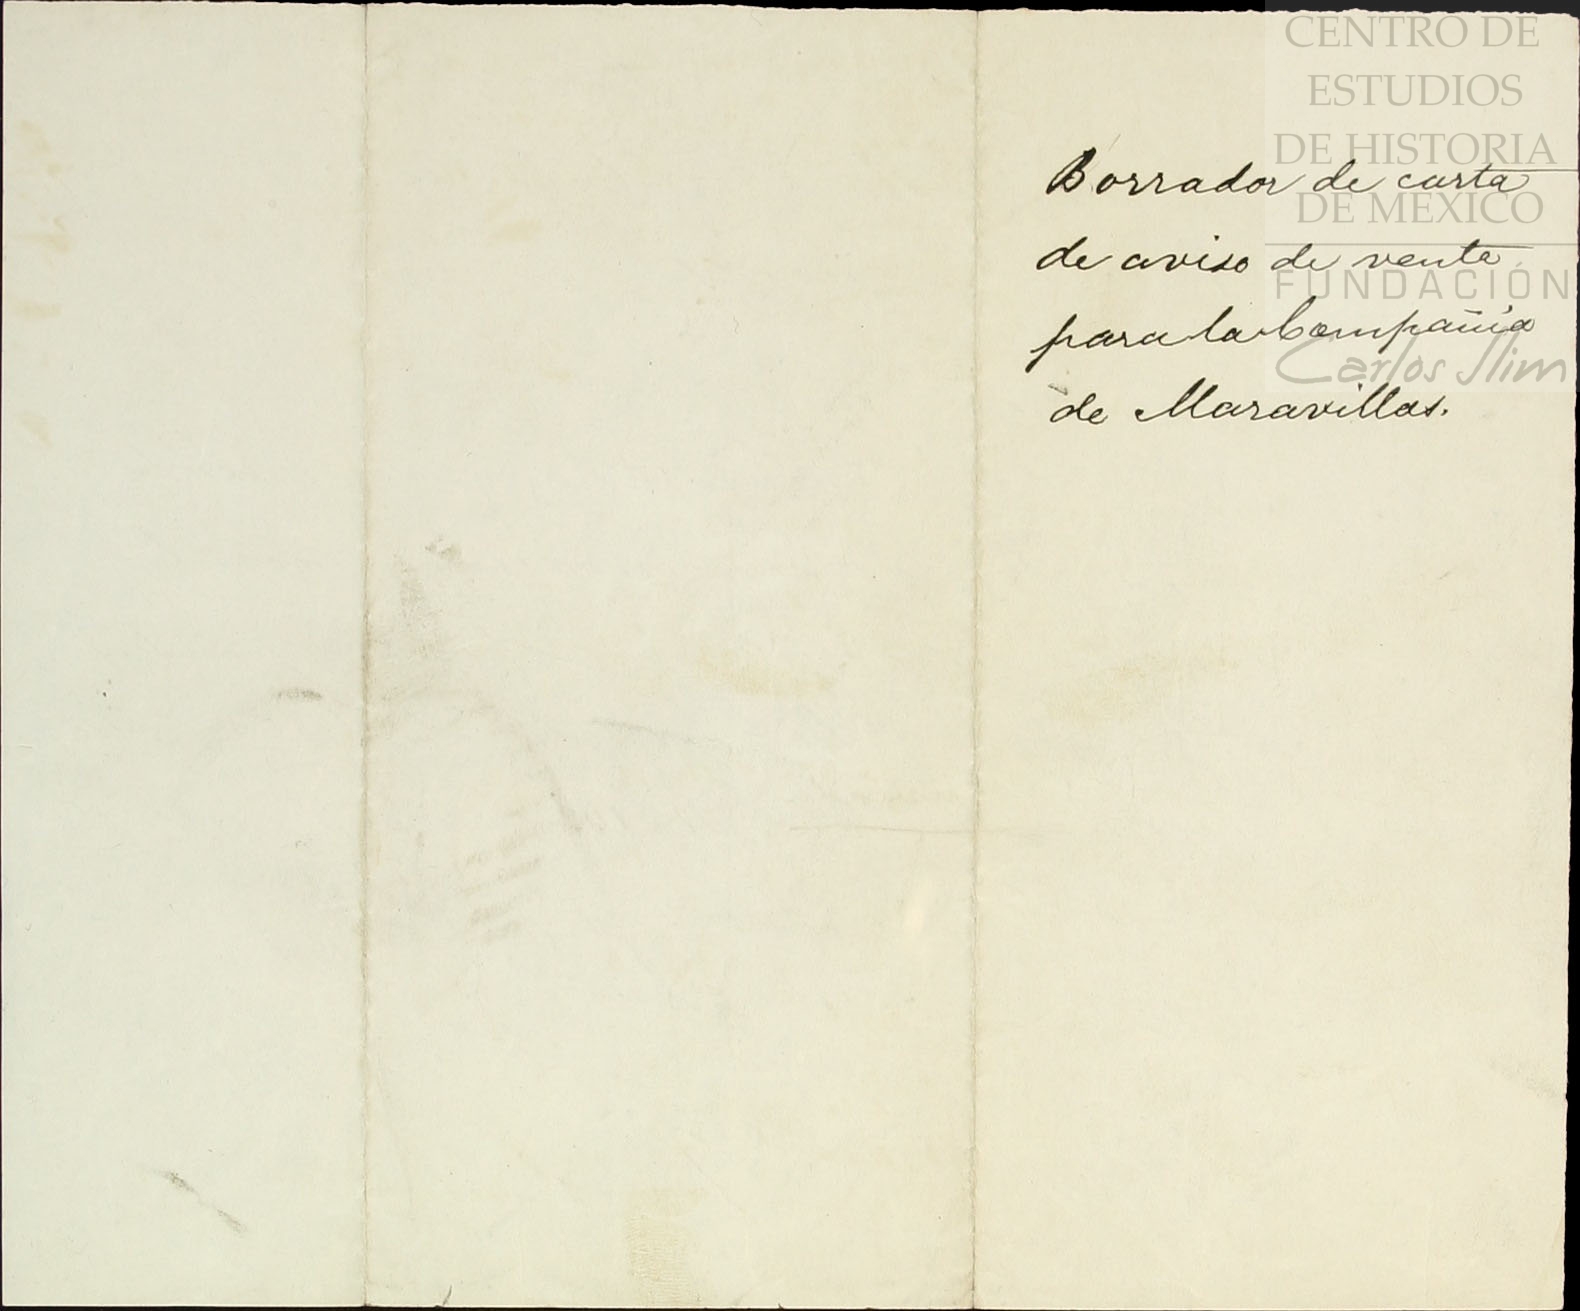 CENTRO DE
ESTUDIOS
DE HISTORIA
DE MEXICO
FUNDACIÓN
Carlos Slim
Borrador de carta
de aviso de venta
para la Compañía
de Maravillas.